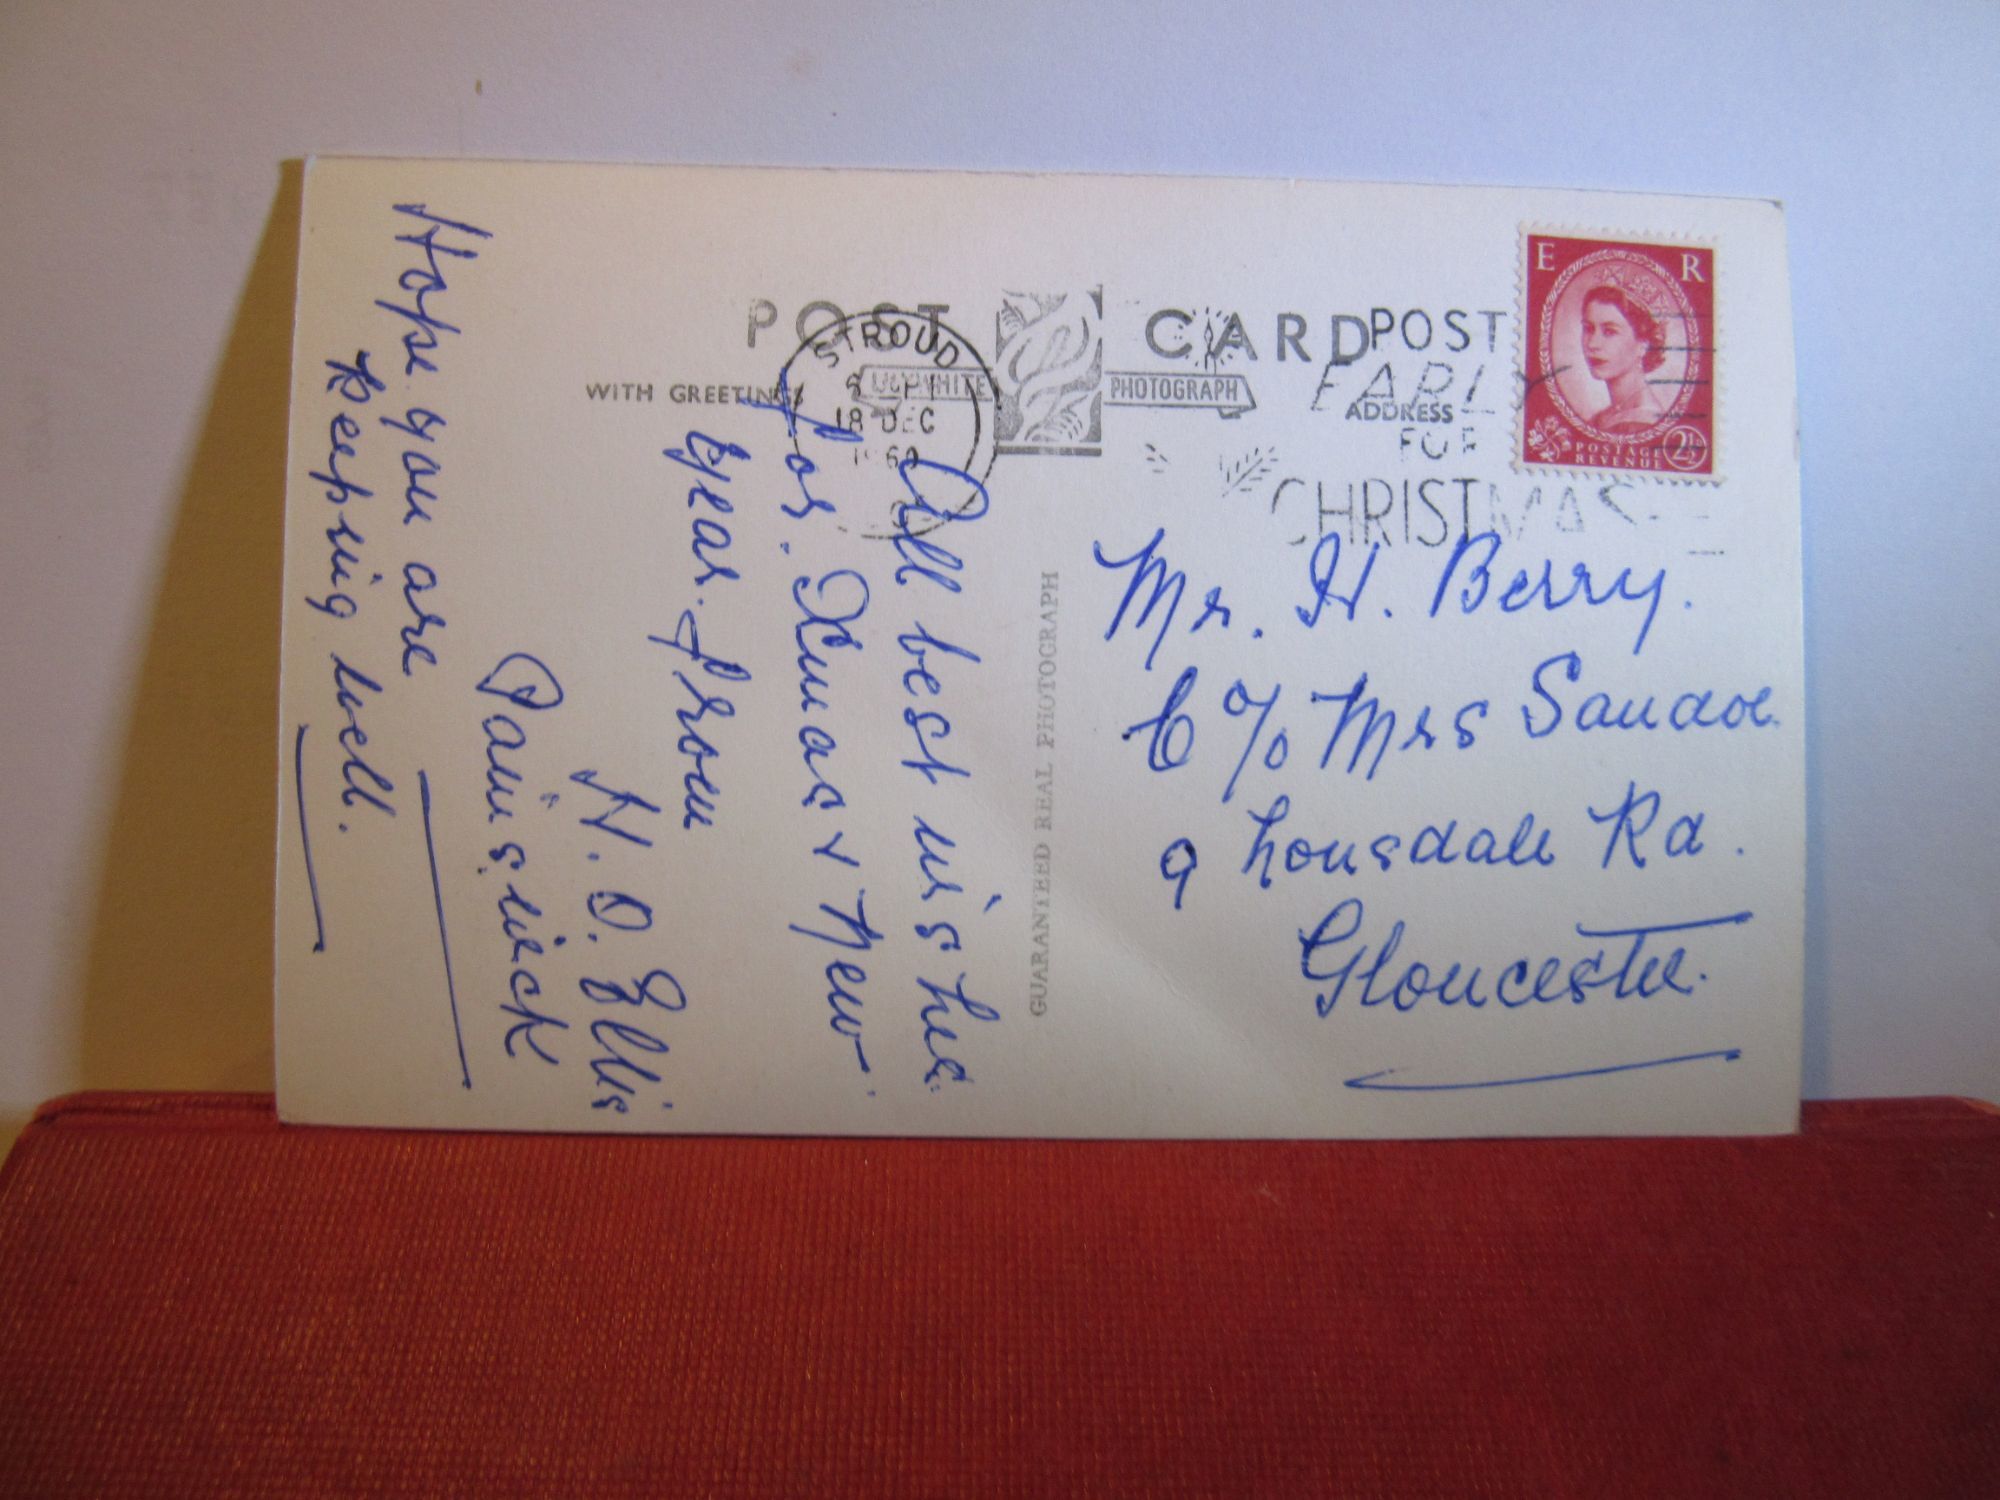 POST CARD
WITH GREETINGS
LILYWHITE PHOTOGRAPH
ADDRESS
STROUD
18 DEC
POST
EARLY
FOR
CHRISTMAS
E R
POSTAGE
REVENUE
2½
GUARANTEED REAL PHOTOGRAPH
All best wishes
for. Xmas & New
year. from
H. O. Ellis
Painswick
Hope you are
keeping well.
Mr. H. Berry.
C/o Mrs
9 Lonsdale Rd.
Gloucester.